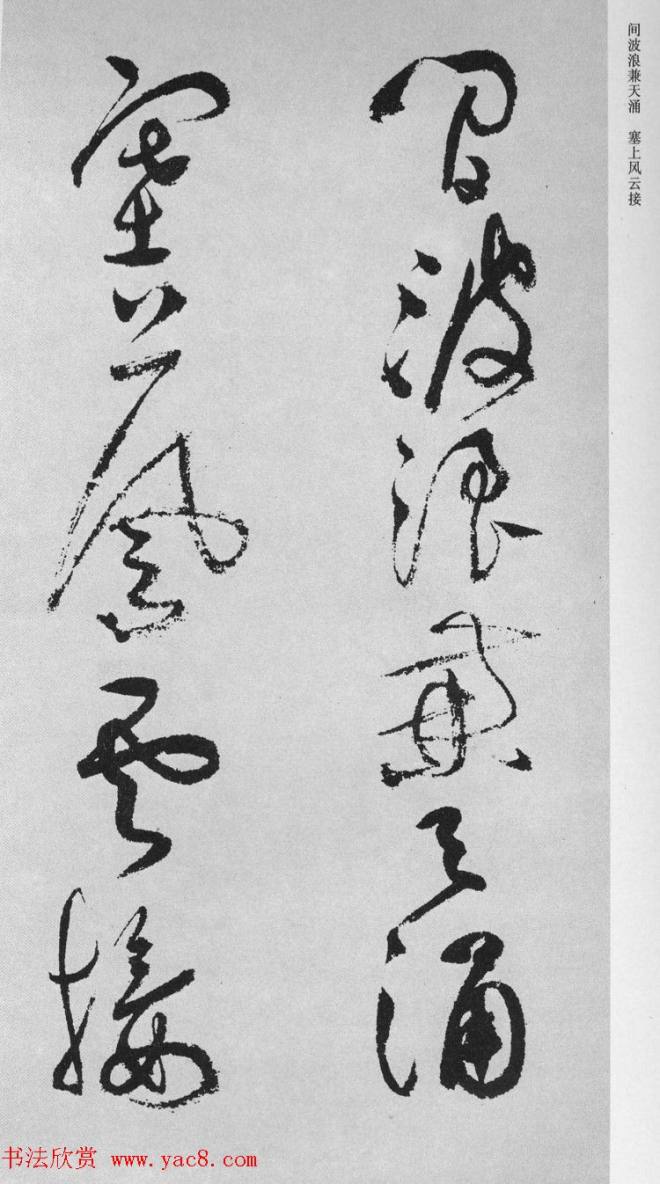 间波浪兼天涌　塞上风云接
间波浪兼天涌
塞上風雲接
书法欣赏 www.yac8.com